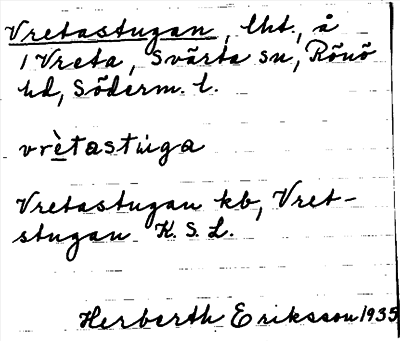 Vretastugan, lht., å
1 Vreta, Svärta sn, Rönö
hd, Söderm. l.
vrètastùga
Vretastugan kb, Vret-
stugan K. S. L.
Herberth Eriksson 1935